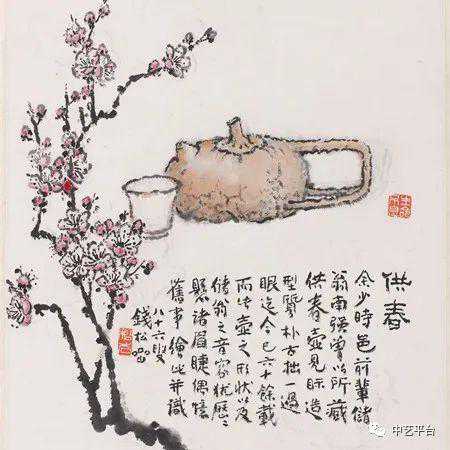 供春
余少時邑前輩儲
翁南强曾以所藏
供春壺見眎造
型質朴古拙一過
眼迄今已六十餘載
而此壺之形狀以及
儲翁之音容猶歷々
懸諸眉睫偶憶
舊事繪此并識
八十六叟
錢松嵒
中艺平台